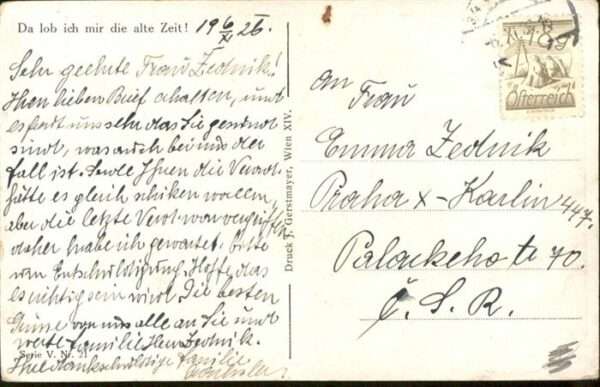 Da lob ich mir die alte Zeit! 19 6/XI 26.
Sehr geehrte Frau Zednik!
Ihren lieben Brief erhalten, und
es freut uns sehr das Sie gesund
sind, was auch bei uns der
fall ist. Sende Ihnen die
hätte es gleich schiken wollen,
aber die letzte war vergriffen
daher habe ich gewartet. Bitte
um Entschuldigung. Hoffe das
es richtig sein wird. Die besten
Grüsse von uns alle an Sie und
werte Familie Herr Zednik.
Serie V. Nr. 21
Ihre dankschuldige Familie
Druck J. Gerstmayer, Wien XIV.
Österreich
An
Frau
Emma Zednik
Praha X - Karlin 447.
Palackeho tr 70.
Č. S. R.